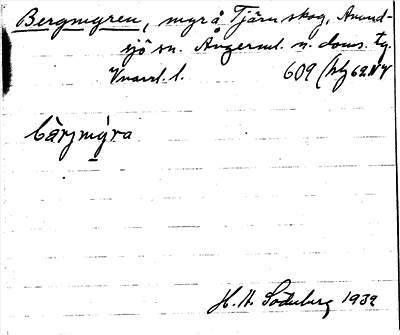 Bergmyren, myr å Tjärn skog, Anund-
sjö sn. Ångerml. n. doms. tg.
609 (blz 62 NV
bärjmýra
H. H. Söderberg 1932